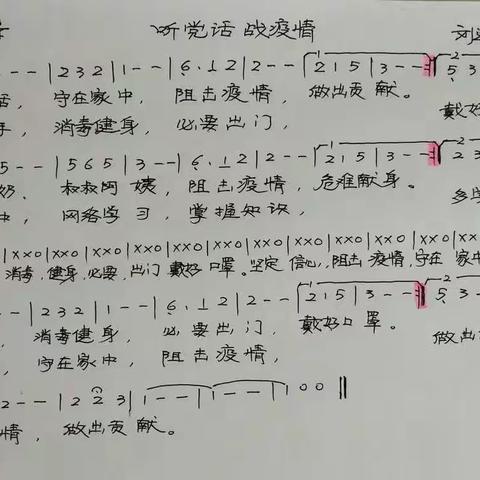 听党话 战疫情 刘
- - - | 2 3 2 | 1 - - | 6. 1 2 | 2 - - | 2 1 5 | 3 - - :| 5 3 -
守在家中, 阻击疫情, 做出贡献。 戴好
消毒健身, 必要出门,
5 - - | 5 6 5 | 3 - - | 6. 1 2 | 2 - - | 2 1 5 | 3 - - :| 2 3
奶, 叔叔阿姨, 阻击疫情, 危难献身。
中, 网络学习, 掌握知识,
| x x 0 | x x 0 | x x 0 | x x 0 | x x 0 | x x 0 | x x 0 | x x 0 | x x 0 | x x 0 | x x 0
消毒,健身,必要,出门 戴好 口罩。坚定 信心,阻击 疫情,守在 家中
- - | 2 3 2 | 1 - - | 6. 1 2 | 2 - - | 2 1 5 | 3 - - :| 5. 3 -
消毒健身, 必要出门, 戴好口罩。 做出
守在家中, 阻击疫情,
2 - - | 2 2 3 | 1 - - | 1 - - | 1 0 0 ||
情, 做出贡献。